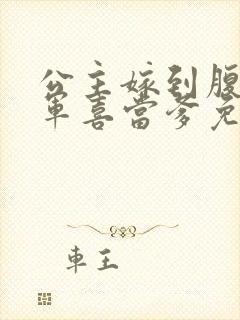 公主嫁到腹
軍喜當爹免
車王